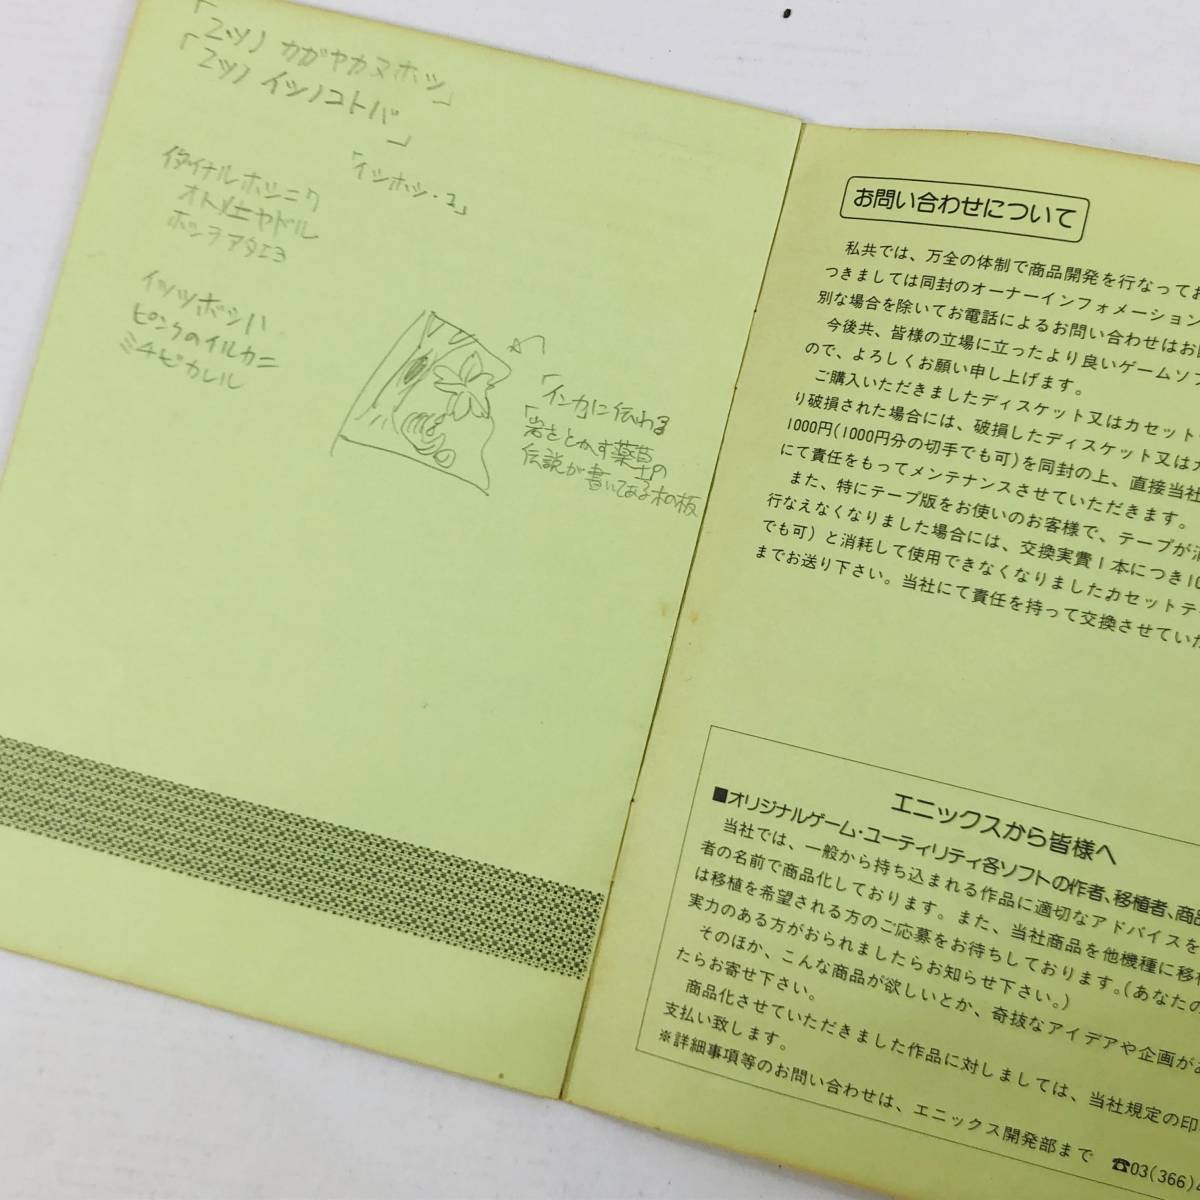 「2ツノ カガヤカヌホシ」
「2ツノ イシノコトバ」
「イシホシ・ユ」
イダイナルホシニワ
オトメヤドル
ホシヲアタエヨ
イツツボシハ
ピンクのイルカニ
ミチビカレル
「インカ」に伝わる
「岩をとかす薬草」の
伝説が書いてある木の板
お問い合わせについて
私共では、万全の体制で商品開発を行なってお
つきましては同封のオーナーインフォメーション
別な場合を除いてお電話によるお問い合わせはお
今後共、皆様の立場に立ったより良いゲームソフ
ので、よろしくお願い申し上げます。
ご購入いただきましたディスケット又はカセット
り破損された場合には、破損したディスケット又はカ
1000円(1000円分の切手でも可)を同封の上、直接当社
にて責任をもってメンテナンスさせていただきます。
また、特にテープ版をお使いのお客様で、テープが消
行なえなくなりました場合には、交換実費1本につき10
でも可)と消耗して使用できなくなりましたカセットテ
までお送り下さい。当社にて責任を持って交換させていた
エニックスから皆様へ
■オリジナルゲーム・ユーティリティ各ソフトの作者、移植者、商品
当社では、一般から持ち込まれる作品に適切なアドバイスを
者の名前で商品化しております。また、当社商品を他機種に移植
は移植を希望される方のご応募をお待ちしております。(あなたの
実力のある方がおられましたらお知らせ下さい。)
そのほか、こんな商品が欲しいとか、奇抜なアイデアや企画があ
たらお寄せ下さい。
商品化させていただきました作品に対しましては、当社規定の印
支払い致します。
※詳細事項等のお問い合わせは、エニックス開発部まで ☎03(366)4